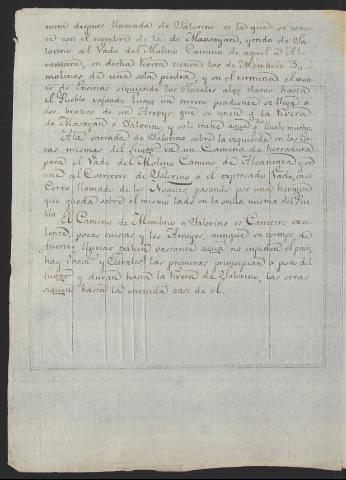 mina despues llamada de Salorino es la que se cono-
ce con el nombre de la de Mausayan, yendo de Sa-
lorino al Vado del Molino Camino de aquel a Al-
cantara, en dicha rivera tienen los de Membrio 3
molinos de una sola piedra, y en el termina el mon-
te de encinas siguiendo los Jarales algo claros hasta
el Pueblo vajando luego un terreno pendiente se llega a
dos brazos de un Arroyo, que se unen a la rivera
de Masayan o Salorino y solo trahe agua quando llueve mucho.
A la entrada de Salorino sobre la izquierda en las
mismas del Lugar va un Camino de herradura
para el Vado del Molino Camino de Alcantara y
un al Carretero de Salorino a el expresado Vado, en el
Cerro llamado de los Nogües, pasando por una hermita
que queda sobre el mismo lado en la orilla misma del Pue-
blo. el Camino de Membrio a Salorino es Carretero exce-
lente, pocas cuestas, y los Arroyos, aunque en tiempo de
fuertes lluvias trahen vastante agua no impiden el paso,
hay Encinas y Jarales las primeras principian a poco del
Lugar y duran hasta la rivera de Salorino, las otras
siguen hasta la entrada casi de el.